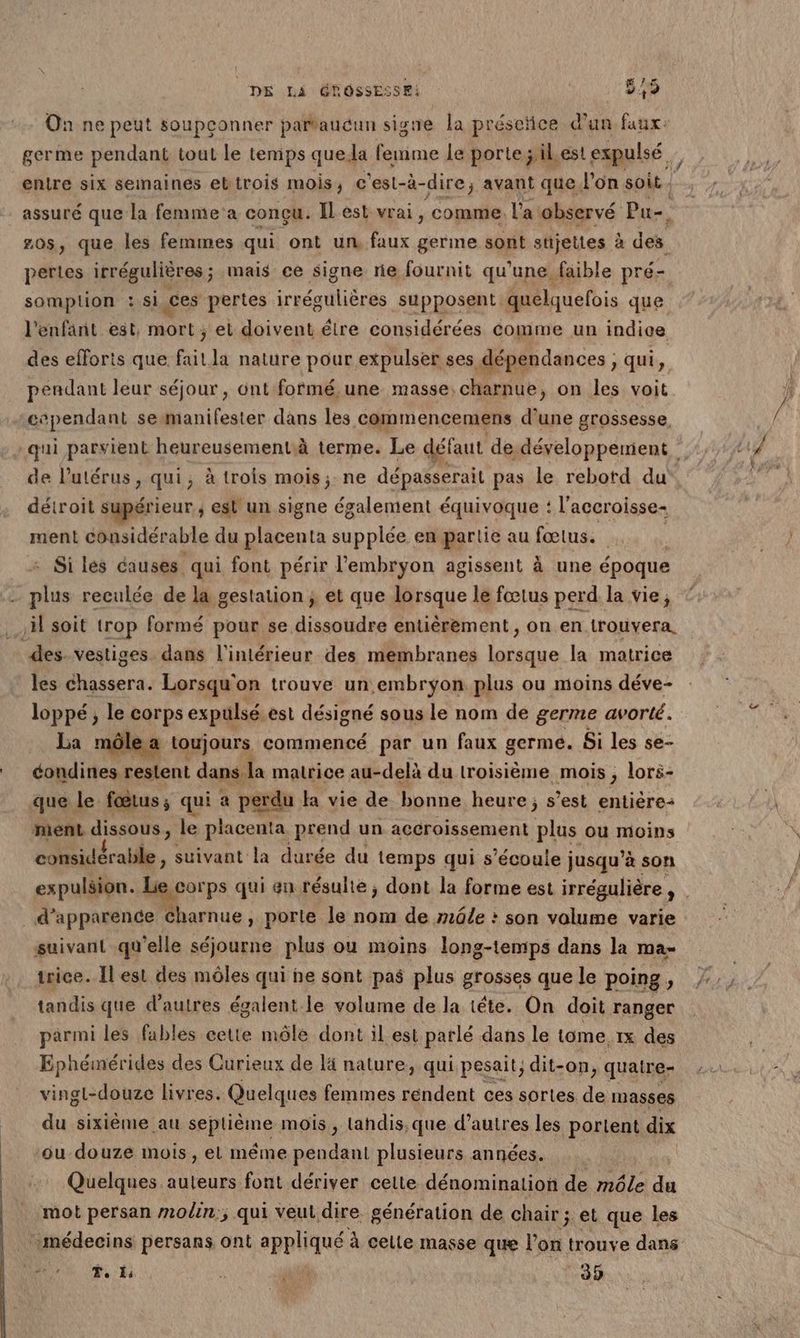 DE LA GROSSESSE. 545
On ne peut soupçonner par aucun signe la présence d'un faux
germe pendant tout le temps que la femme le porte ; il est expulsé
entre six semaines et trois mois, c'est-à-dire, avant que l'on soit
assuré que la femme a conçu. Il est vrai, comme l'a observé Pu-
zos, que les femmes qui ont un faux germe sont sujettes à des
pertes irrégulières ; mais ce signe ne fournit qu'une faible pré-
somption : si ces pertes irrégulières supposent quelquefois que
l'enfant est mort, et doivent être considérées comme un indice
des efforts que fait la nature pour expulser ses dépendances, qui,
pendant leur séjour, ont formé une masse charnue, on les voit
cependant se manifester dans les commencemens d'une grossesse
qui parvient heureusement à terme. Le défaut de développement
de l'utérus, qui, à trois mois, ne dépasserait pas le rebord du
détroit supérieur, est un signe également équivoque : l'accroisse-
ment considérable du placenta supplée en partie au fœtus.
Si les causes qui font périr l'embryon agissent à une époque
plus reculée de la gestation, et que lorsque le fœtus perd la vie,
il soit trop formé pour se dissoudre entièrement, on en trouvera
des vestiges dans l'intérieur des membranes lorsque la matrice
les chassera. Lorsqu'on trouve un embryon plus ou moins déve-
loppé, le corps expulsé est désigné sous le nom de germe avorté.
La môle a toujours commencé par un faux germe. Si les se-
condines restent dans la matrice au-delà du troisième mois, lors-
que le fœtus, qui a perdu la vie de bonne heure, s'est entière-
ment dissous, le placenta prend un accroissement plus ou moins
considérable, suivant la durée du temps qui s'écoule jusqu'à son
expulsion. Le corps qui en résulte, dont la forme est irrégulière,
d'apparence charnue, porte le nom de môle : son volume varie
suivant qu'elle séjourne plus ou moins long-temps dans la ma-
trice. Il est des môles qui ne sont pas plus grosses que le poing,
tandis que d'autres égalent le volume de la tête. On doit ranger
parmi les fables cette môle dont il est parlé dans le tome IX des
Ephémérides des Curieux de la nature, qui pesait, dit-on, quatre-
vingt-douze livres. Quelques femmes rendent ces sortes de masses
du sixième au septième mois, tandis que d'autres les portent dix
ou douze mois, et même pendant plusieurs années.
Quelques auteurs font dériver cette dénomination de môle du
mot persan molin, qui veut dire génération de chair ; et que les
médecins persans ont appliqué à cette masse que l'on trouve dans
T. I. 35